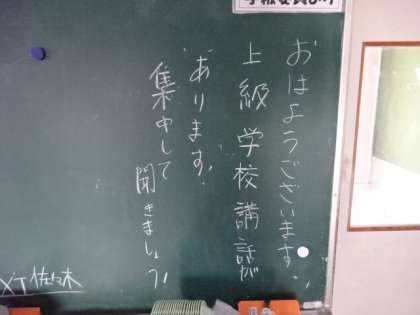 おはようございます!
上級学校講話が
あります!
集中して
聞きましょう!
佐々木